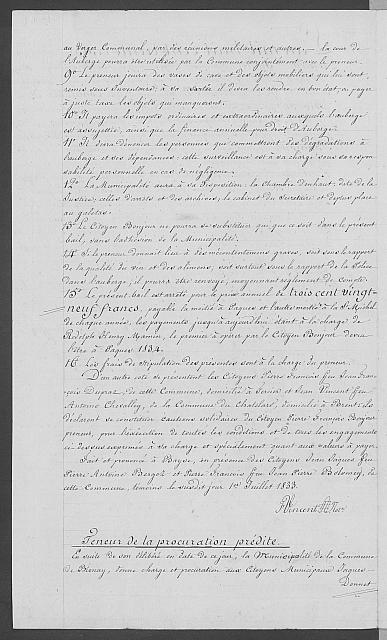 au verger Communal, par des réunions militaires et autres. — La cour de
l'auberge pourra être utilisée par la Commune conjointement avec le preneur.
9° Le preneur jouira des vases de cave et des objets mobiliers qui lui sont
remis sous Inventaire; à sa sortie il devra les rendre en bon état, ou payer
à juste taxe les objets qui manqueront.
10° Il payera les impots ordinaires et extraordinaires auxquels l'auberge
est assujettie, ainsi que la finance annuelle pour droit d'auberge.
11° Il devra dénoncer les personnes qui commettront des dégradations à
l'auberge et ses dépendances: cette surveillance est à sa charge sous sa respon-
sabilité personnelle en cas de négligence.
12° La Municipalité aura à sa disposition: la Chambre d'enhaut dite de la
Justice, celles d'arrêts et des archives, le cabinet du Secrétaire et depuis place
au galetas.
13° Le Citoyen Bonjour ne pourra se substituer qui que ce soit dans le présent
bail, sans l'adhésion de la Municipalité.
14° Si le preneur donnait lieu à des mécontentemens graves, soit sous le rapport
de la qualité du vin et des alimens, soit surtout sous le rapport de la Police
dans l'auberge, il pourra être renvoyé, moyennant règlement de Compte.
15° Le présent bail est arrêté pour le prix annuel de trois cent vingt-
neuf francs, payable la moitié à Pâques et l'autre moitié à la St. Michel
de chaque année, les payements jusqu'aujourd'hui étant à la charge de
Rodolph Henry Mamin, le premier à opérer par le Citoyen Bonjour devra
être à Pâques 1834.
16° Les frais de stipulation des présentes sont à la charge du preneur.
D'un autre coté se présentent les Citoyens Pierre François feu Jean Fran-
çois Dupraz, de cette Commune, domicilié à et Jean Vincent feu
Antoine Chevalley, de la Commune du Chatelard, domicilié à Brent, ils
déclarent se constituer cautions solidaires du Citoyen Pierre François Bonjour
preneur, pour l'exécution de toutes les conditions et de tous les engagements
ci-dessus exprimés à sa charge et spécialement quant aux valeurs à payer.
Fait et prononcé à en présence des Citoyens Jean Jaques feu
Pierre Antoine Bergoz et Pierre François feu Jean Pierre Bolomey, de
cette Commune, témoins, le susdit jour 1er Juillet 1833.
Vincent Not.re
Teneur de la procuration prédite.
En suite de son délibéré en date de ce jour, la Municipalité de la Commune
de Blonay, donne charge et procuration aux Citoyens Municipaux Jaques
Bonnet